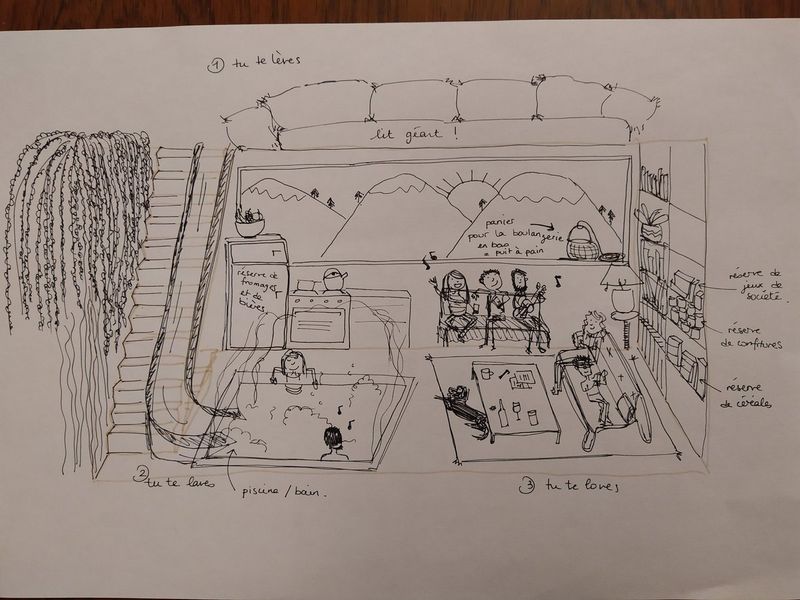 ① tu te lèves
lit géant !
panier
pour la boulangerie
en bas
= puit à pain
réserve de
fromages
et de
bières.
réserve de
jeux de
société.
réserve
de confitures
réserve
de céréales
② tu te laves
piscine / bain.
③ tu te loves